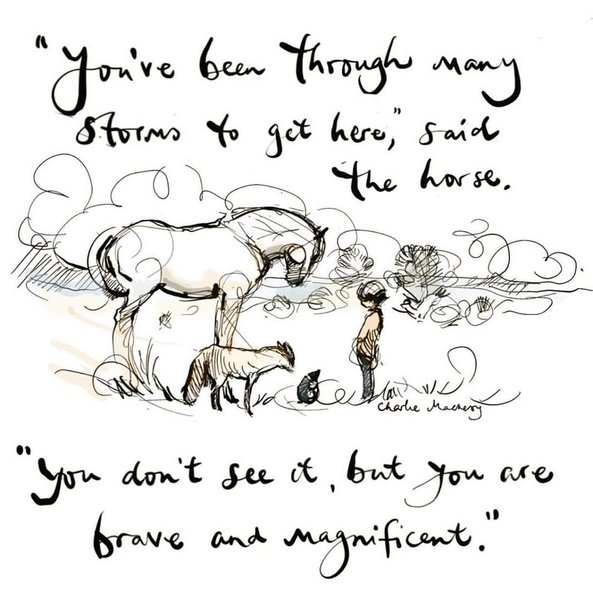 "You've been through many
storms to get here," said
the horse.
Charlie Mackesy
"You don't see it, but you are
brave and magnificent."